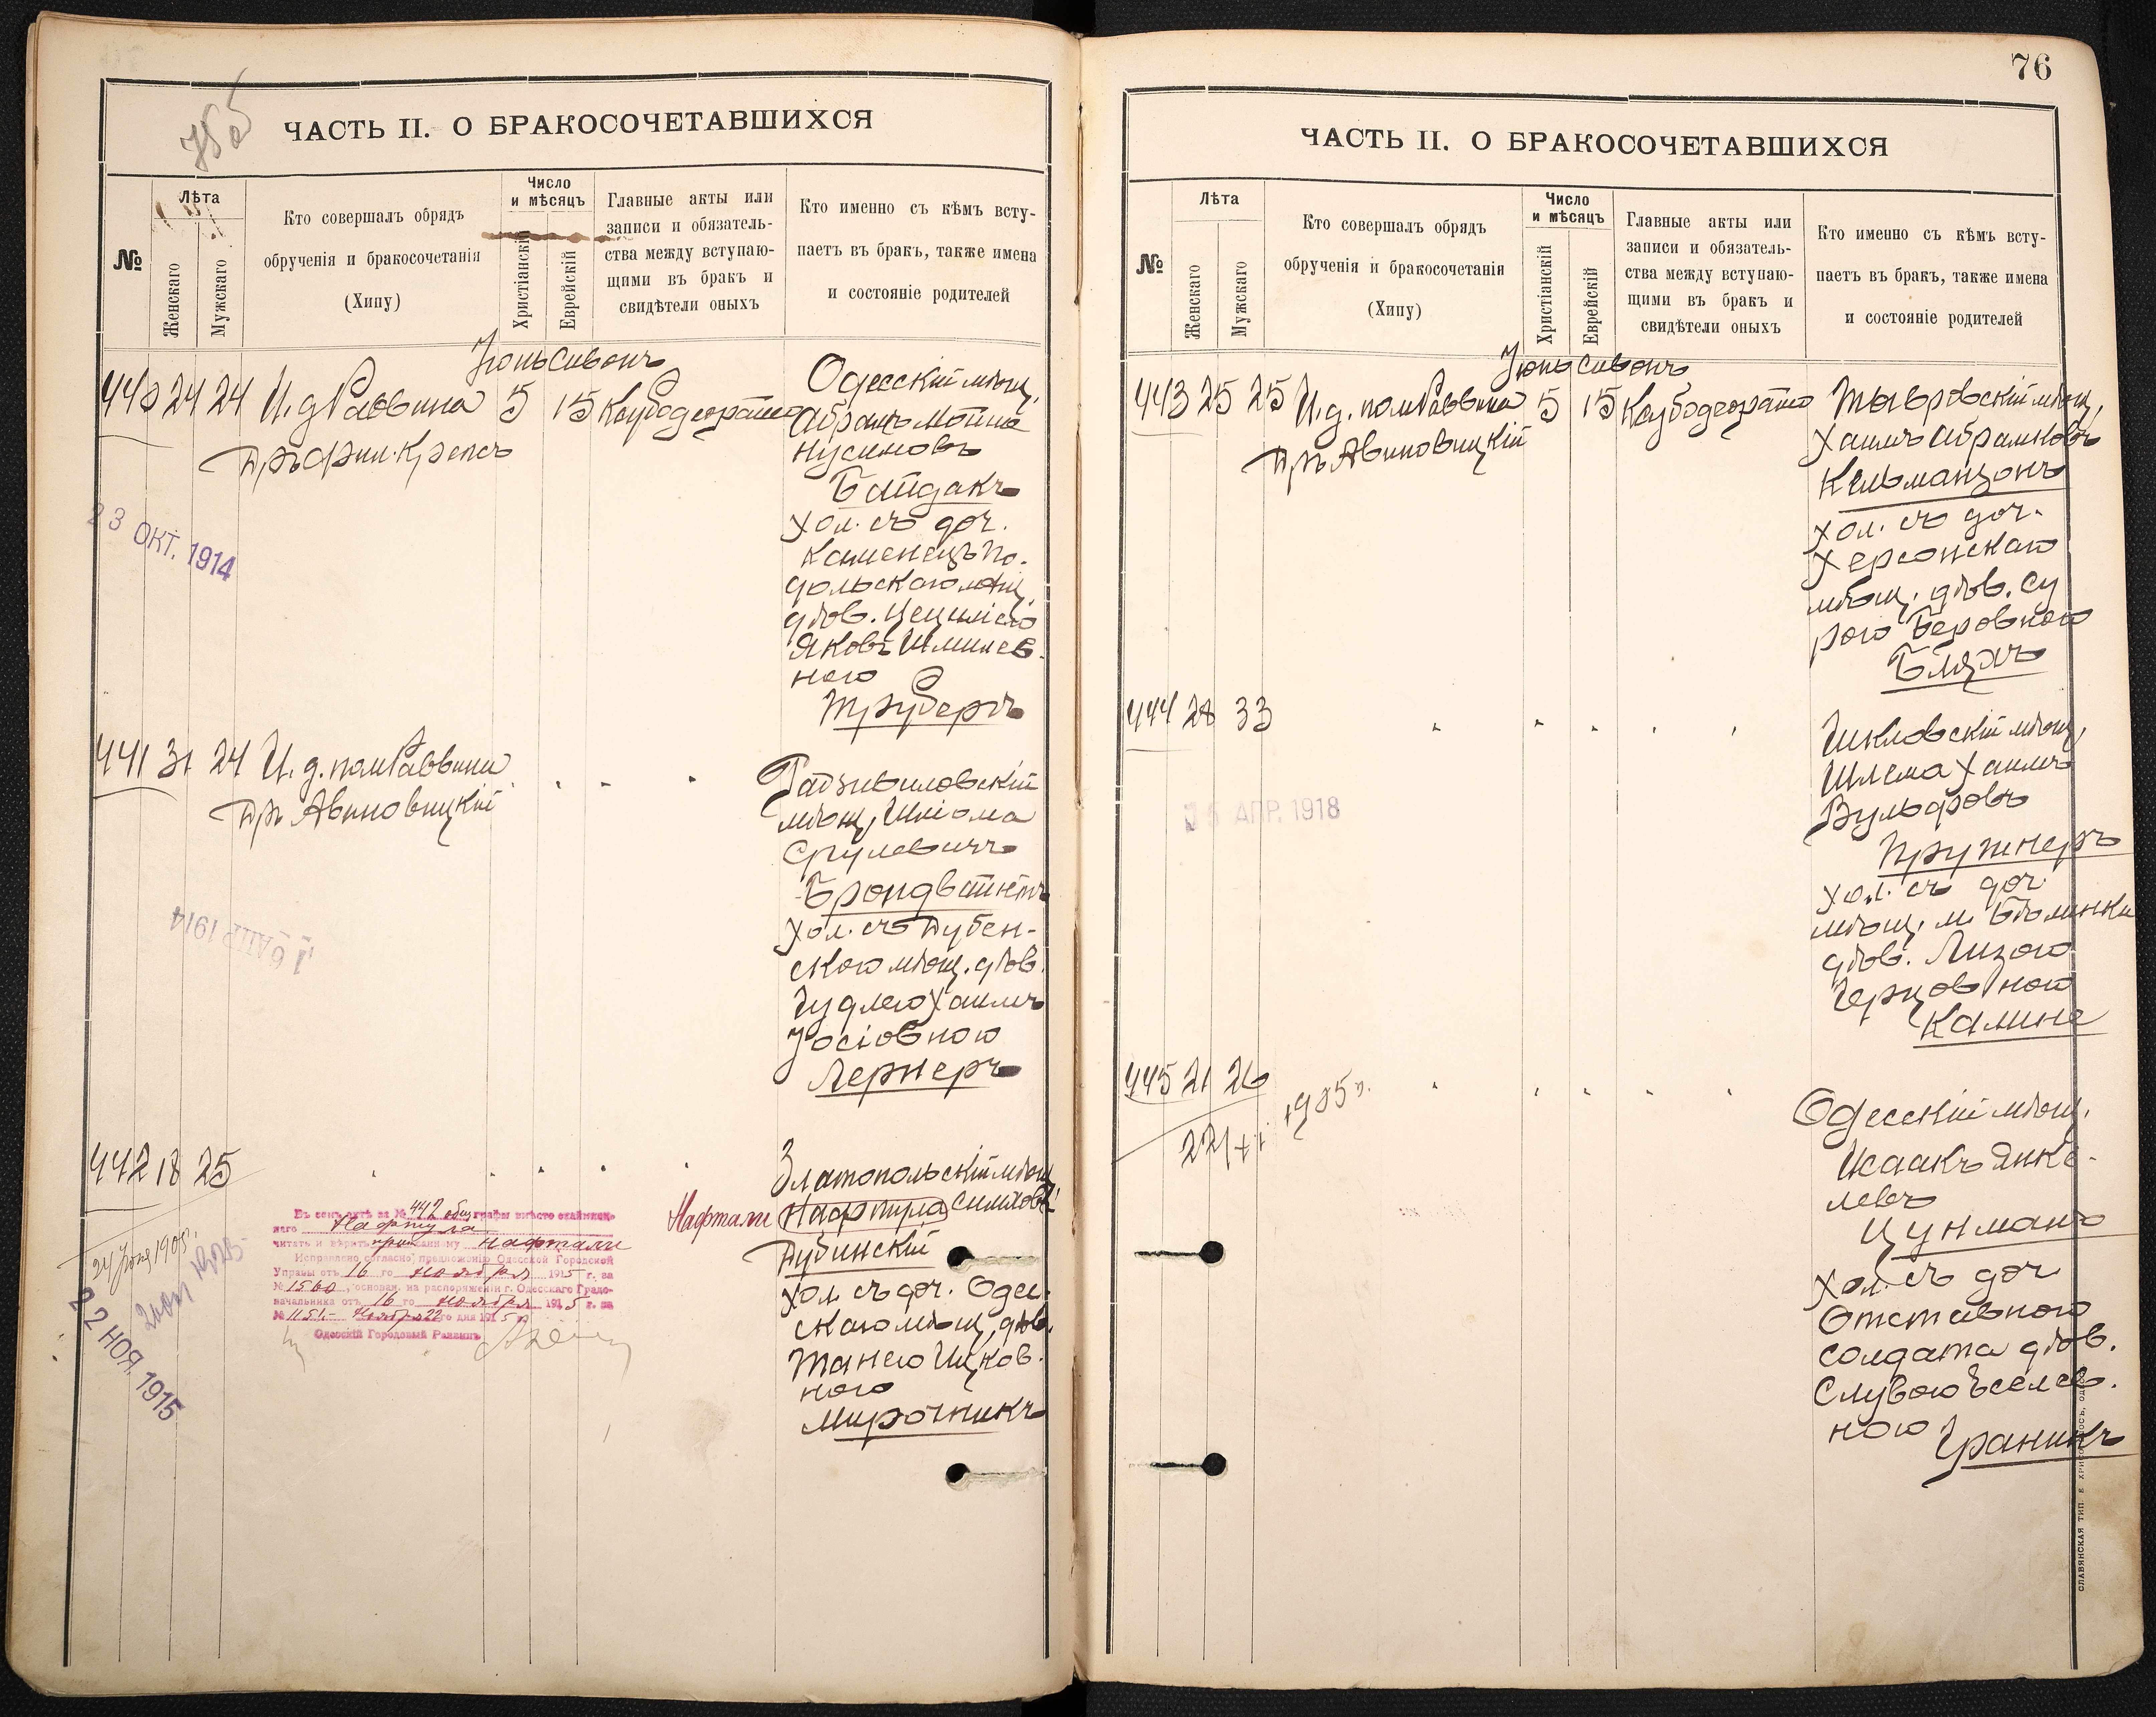 ЧАСТЬ II. О БРАКОСОЧЕТАВШИХСЯ
№
Лѣта
Женскаго
Мужскаго
Кто совершалъ обрядъ
обрученія и бракосочетанія
(Хипу)
Число
и мѣсяцъ
Христіанскій
Еврейскій
Главные акты или
записи и обязатель-
ства между вступаю-
щими въ бракъ и
свидѣтели оныхъ
Кто именно съ кѣмъ всту-
паетъ въ бракъ, также имена
и состояніе родителей
Іюнь Сивонъ
440 24 24 И. д. Раввина 5 15
Дръ Фил. Крепсъ
Одесскій мѣщ.
Абрамъ Мойше
Нусимовъ
Байдакъ
хол. съ доч.
Каменецъ По-
дольскаго мѣщ.
дѣв. Цециліею
Яковъ Шмилев-
ною
Труберъ
23 ОКТ. 1914
441 31 24 И. д. пом. Раввина
Дръ Авиновицкій
Радзивиловскій
мѣщ. Шлiома
Срулевичъ
Брондвайнъ
хол. съ Дубен-
скою мѣщ. дѣв.
Гудлею Хаимъ
Іосіовною
Лернеръ
16 АПР 1914
442 18 25
Златопольскій мѣщ.
Нафтали
Нафтула Симховъ
Дубинскій
хол. съ доч. Одес-
скаго мѣщ. дѣв.
Танею Ицков-
ною
Мирочникъ
Въ семъ актѣ за № 442 общ графы вмѣсто
наго Нафтула
читать и вѣрить Нафтали
Исправлено согласно предложенію Одесской Городской
Управы отъ 16 го ноября 1915 г. за
№ 1560, основан. на распоряженіи г. Одесскаго Градо-
начальника отъ 16 го ноября 1915 г. за
№ 1151. Ноября 22 го дня 1915 г.
Одесскій Городовой Раввинъ
24 Іюня 1905.
22 НОЯ. 1915
76
ЧАСТЬ II. О БРАКОСОЧЕТАВШИХСЯ
№
Лѣта
Женскаго
Мужскаго
Кто совершалъ обрядъ
обрученія и бракосочетанія
(Хипу)
Число
и мѣсяцъ
Христіанскій
Еврейскій
Главные акты или
записи и обязатель-
ства между вступаю-
щими въ бракъ и
свидѣтели оныхъ
Кто именно съ кѣмъ всту-
паетъ въ бракъ, также имена
и состояніе родителей
Іюнь Сивонъ
443 25 25 И. д. пом. Раввина 5 15
Дръ Авиновицкій
мѣщ.
Хаимъ Абрамковъ
Кельманзонъ
хол. съ доч.
Херсонскаго
мѣщ. дѣв. Су
рою Беровною
Бляхъ
444 28 33
Шкловскій мѣщ.
Шлема Хаимъ
Вульфовъ
Пружнеръ
хол. съ доч
мѣщ. м. Бѣлинки
дѣв. Лизою
Герцовною
Калине
АПР. 1918
445 21 26
1905 г.
Одесскій мѣщ.
Исаакъ Янке-
левъ
Цунманъ
хол. съ доч
Отставного
солдата дѣв.
Слувою Іселев-
ною Граникъ
СЛАВЯНСКАЯ ТИП.